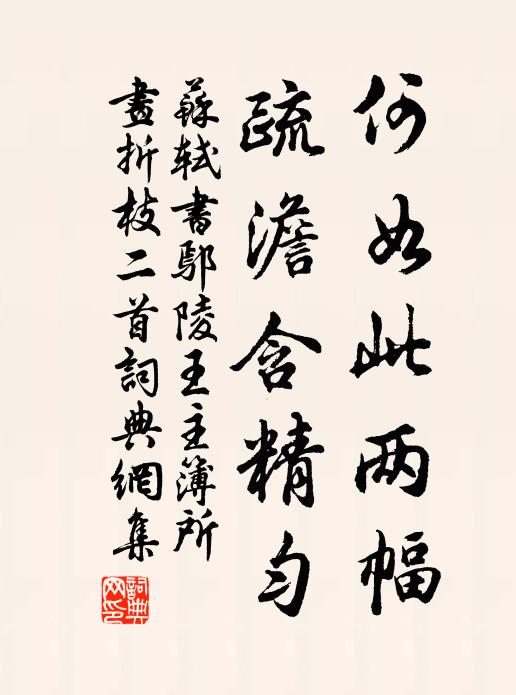 何如此两幅
疏澹含精匀
蘇軾書鄢陵王主簿所
畫折枝二首詞典網集
詞典網印